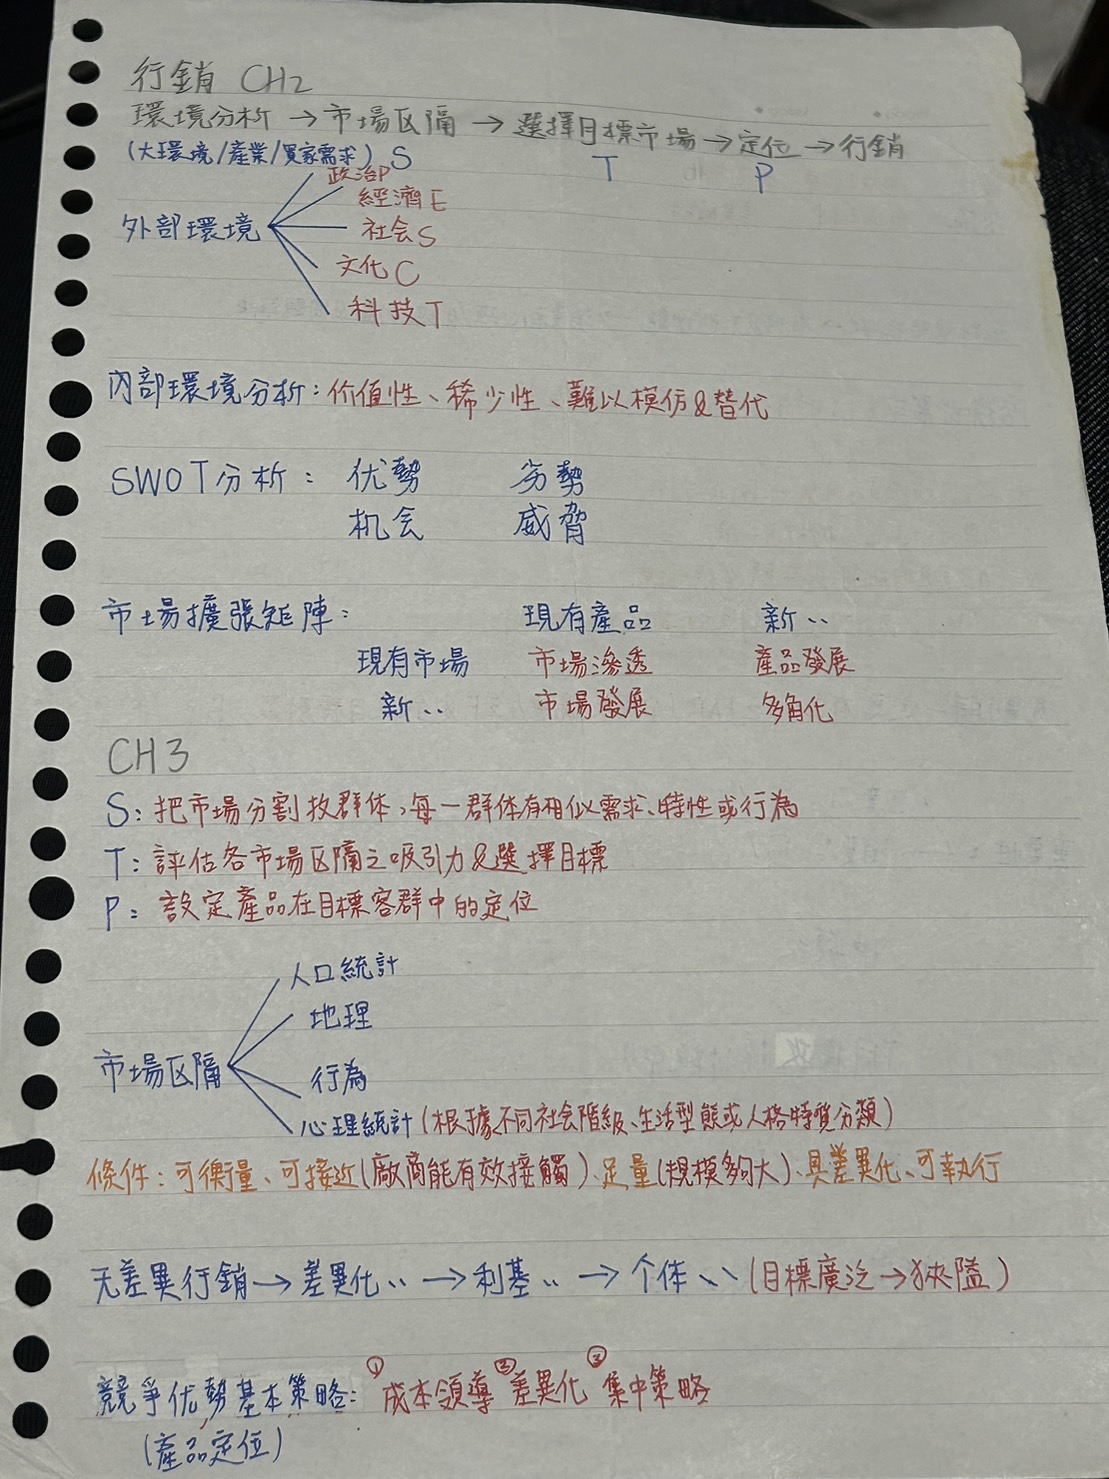 行銷 CH2
環境分析→市場区隔→選擇目標市場→定位→行銷
(大環境/產業/買家需求) S T P
政治P
經濟E
外部環境 社会S
文化C
科技T
內部環境分析：价值性、稀少性、難以模仿&替代
SWOT分析： 优勢 劣勢
机会 威脅
市場擴張矩陣： 現有產品 新‥
現有市場 市場滲透 產品發展
新‥ 市場發展 多角化
CH3
S：把市場分割放群体，每一群体有相似需求、特性或行為
T：評估各市場区隔之吸引力&選擇目標
P：設定產品在目標客群中的定位
人口統計
地理
市場区隔
行為
心理統計(根據不同社会階級、生活型態或人格特質分類)
條件：可衡量、可接近(廠商能有效接觸)、足量(規模夠大)、具差異化、可執行
无差異行銷→差異化‥→利基‥→个体‥(目標廣泛→狹隘)
競爭优勢基本策略：①成本領導 ②差異化 ③集中策略
(產品定位)